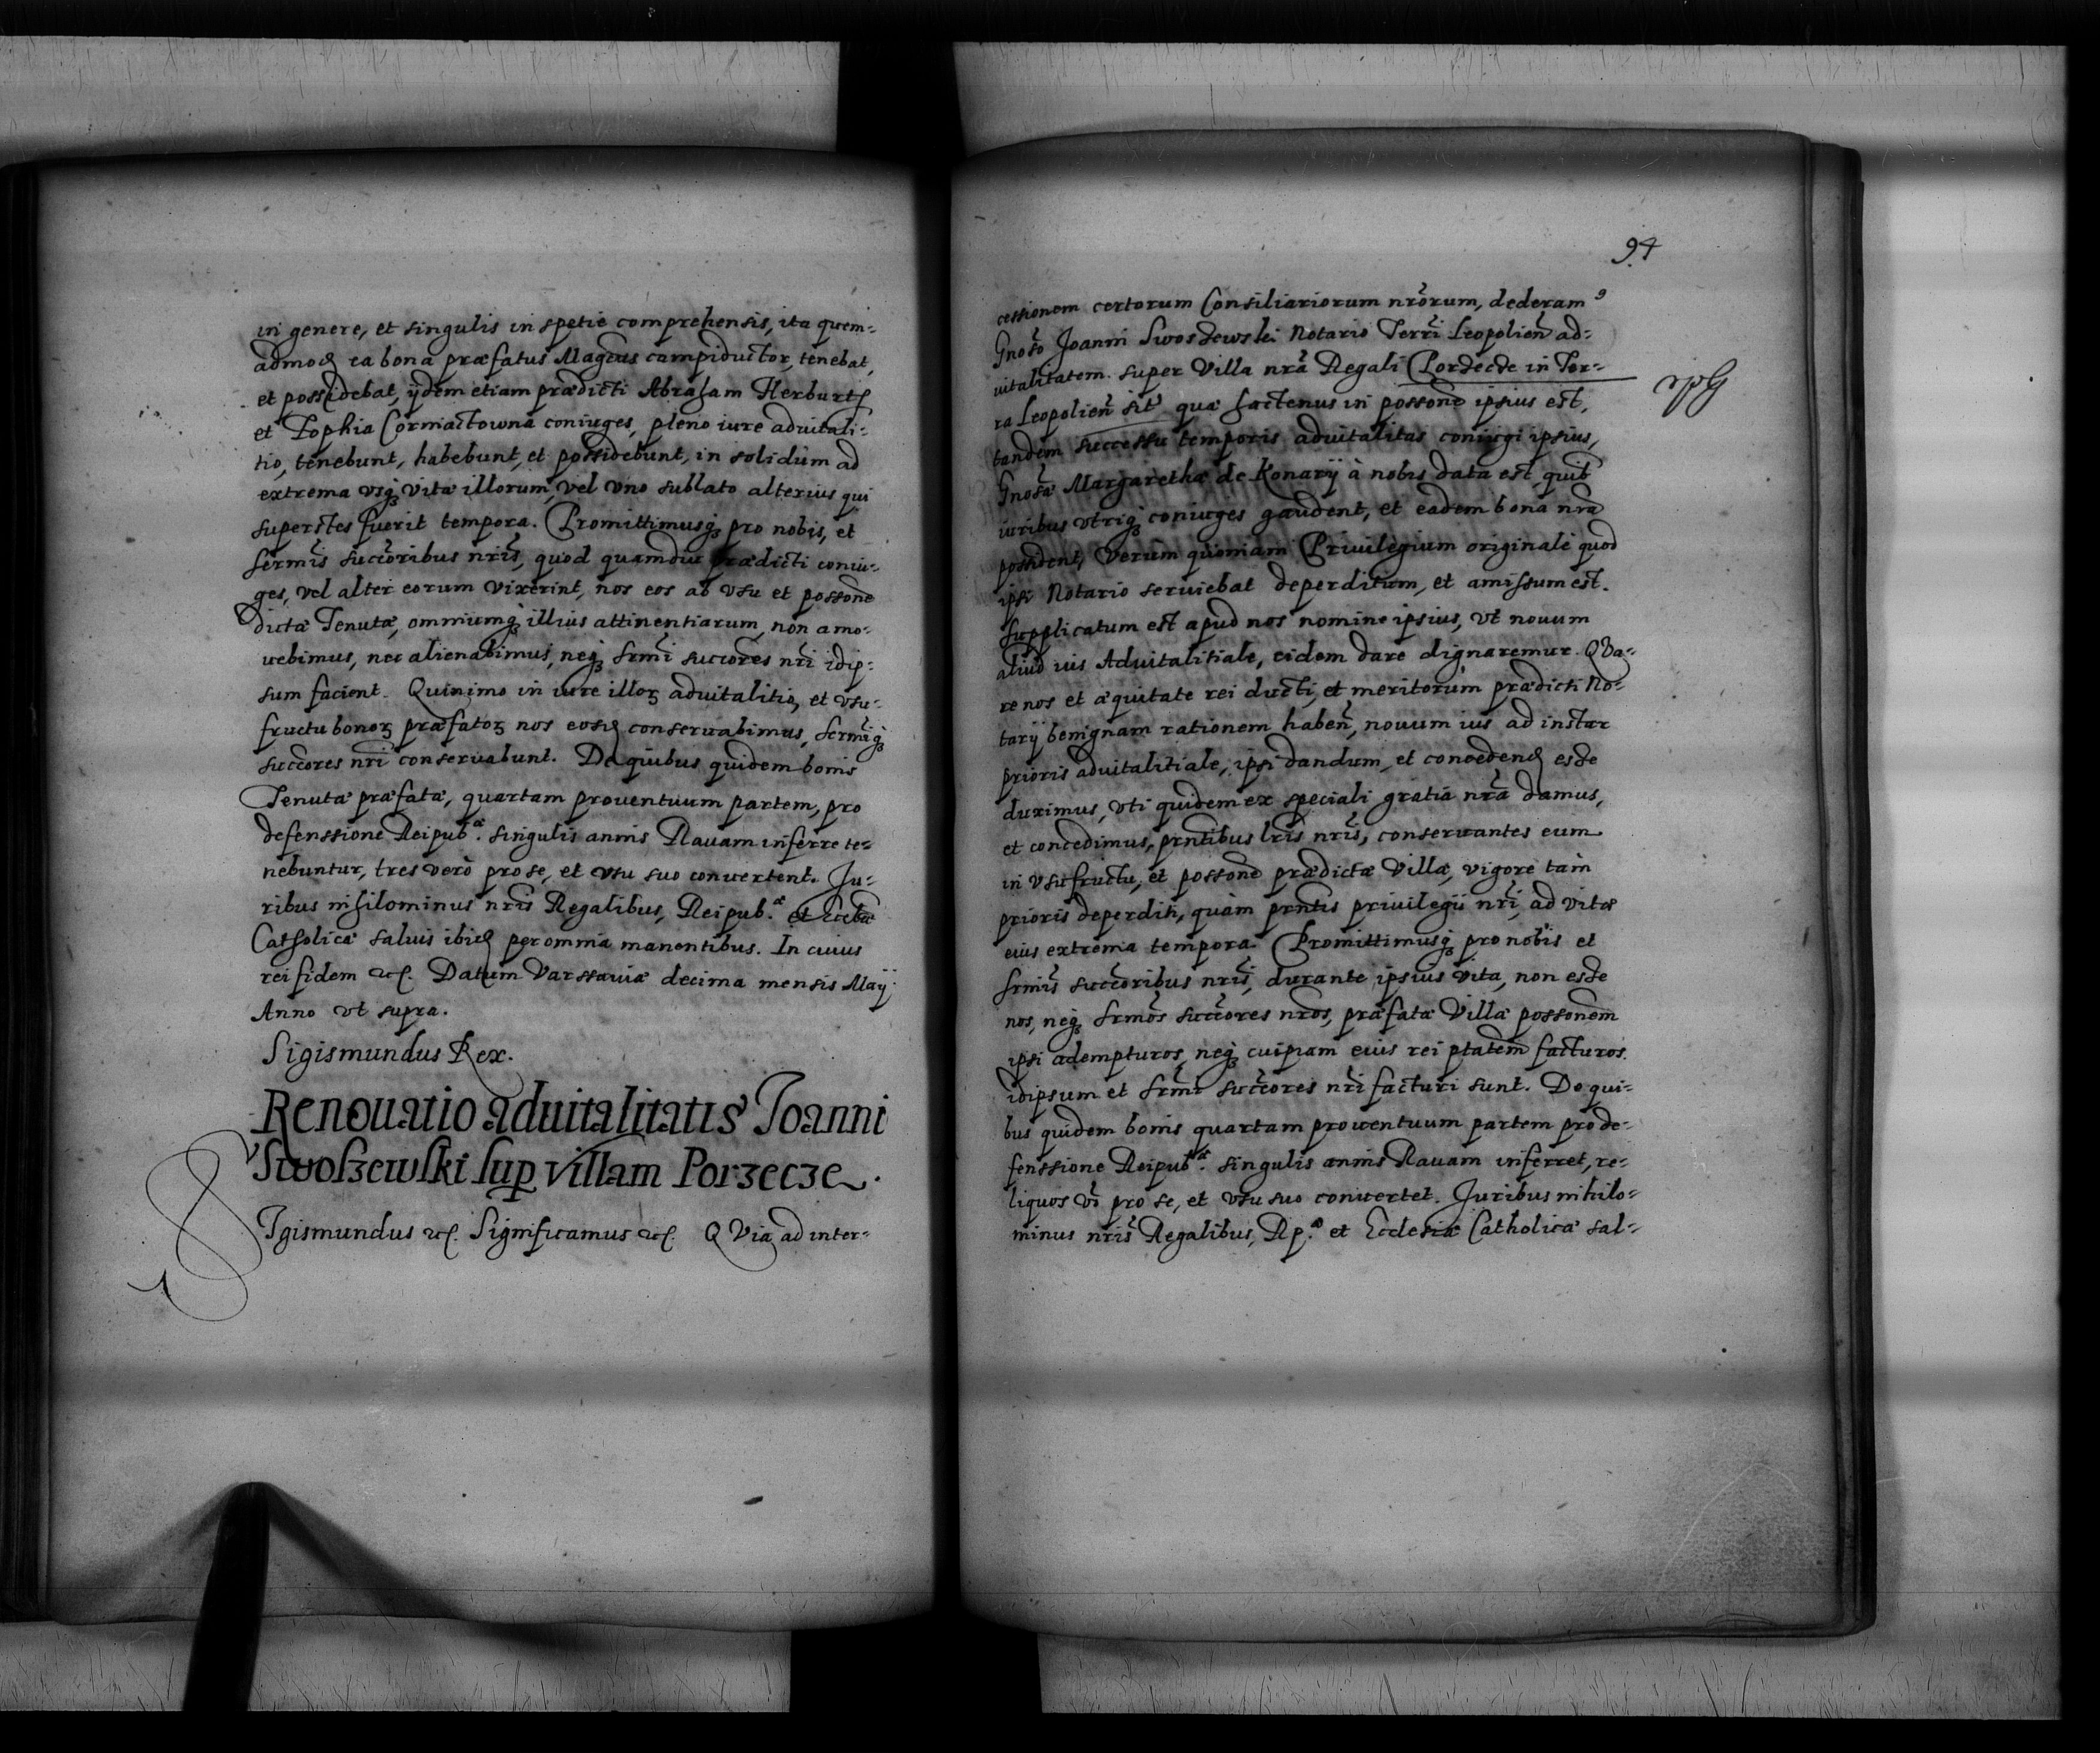 in genere, et singulis in spetie comprehensis, ita quem-
admod ea bona præfatus Magcus campiductor, tenebat,
et possidebat, ijdem etiam prædicti Abraham Herburt
et Zophia coniuges, pleno iure aduitali-
tio, tenebunt, habebunt, et possidebunt, in solidum ad
extrema vsq vitæ illorum, vel vno sublato alterius qui
superstes fuerit tempora. Promittimusq pro nobis, et
Sermis succoribus nris, quod quamdiu prædicti coniu-
ges, vel alter eorum vixerint, nos eos ab vsu et possone
dictæ Tenutæ, omniumq illius attinentiarum, non amo-
uebimus, nec alienabimus, neq Srmi succores nri idip-
sum facient. Quinimo in iure illoꝝ aduitalitio, et vsu-
fructu bonoꝝ præfatoꝝ nos eosd conseruabimus, Sermiq
succores nri conseruabunt. De quibus quidem bonis
Tenutæ præfatæ, quartam prouentuum partem, pro
defenssione Reipub.æ singulis annis Rauam inferre te-
nebuntur, tres verò pro se, et vsu suo conuertent. Ju-
ribus nihilominus nris Regalibus, Reipub.æ et Eccliæ
Catholicæ saluis ibid per omnia manentibus. In cuius
rei fidem etc. Datum Varssauiæ decima mensis Maij
Anno vt supra.
Sigismundus Rex.
Renouatio aduitalitatis Joanni
Swoszewski sup villam Porzecze.
SIgismundus etc. Significamus etc. QVia ad inter-
94
cessionem certorum Consiliariorum nrorum, dederam9
Gnoso Joanni Swoszewski Notario Terri Leopolien ad-
uitalitatem super Villa nra Regali Porzecze in Ter-
ra Leopolien sit quæ hactenus in possone ipsius est,
tandem successu temporis aduitalitas coniugi ipsius,
Gnosæ Margarethæ de Konarij à nobis data est, quib
iuribus vtriq coniuges gaudent, et eadem bona nra
possident, Verùm quoniam Priuilegium originale quod
ipsi Notario seruiebat deperditum, et amissum est.
Supplicatum est apud nos nomine ipsius, vt nouum
aliud ius Aduitalitiale, eidem dare dignaremur. QVa-
re nos et æquitate rei ducti, et meritorum prædicti No-
tarij benignam rationem haben, nouum ius ad instar
prioris aduitalitiale, ipsi dandum, et concedend esse
duximus, vti quidem ex speciali gratia nra damus,
et concedimus, prntibus lris nris, conseruantes eum
in vsufructu, et possone prædictæ Villæ, vigore tàm
prioris deperditi, quàm prntis priuilegii nri, ad vitæ
eius extrema tempora. Promittimusq pro nobis et
Srmis succoribus nris, durante ipsius vita, non esse
nos, neq Srmos succores nros, præfatæ Villæ possonem
ipsi adempturos, neq cuipiam eius rei ptatem facturos.
idipsum et Srmi succores nri facturi sunt. De qui-
bus quidem bonis quartam prouentuum partem pro de-
fenssione Reipub.æ singulis annis Rauam inferret, re-
liquos vò pro se, et vsu suo conuertet. Juribus nihilo-
minus nris Regalibus, Rp.æ et Ecclesiæ Catholicæ sal-